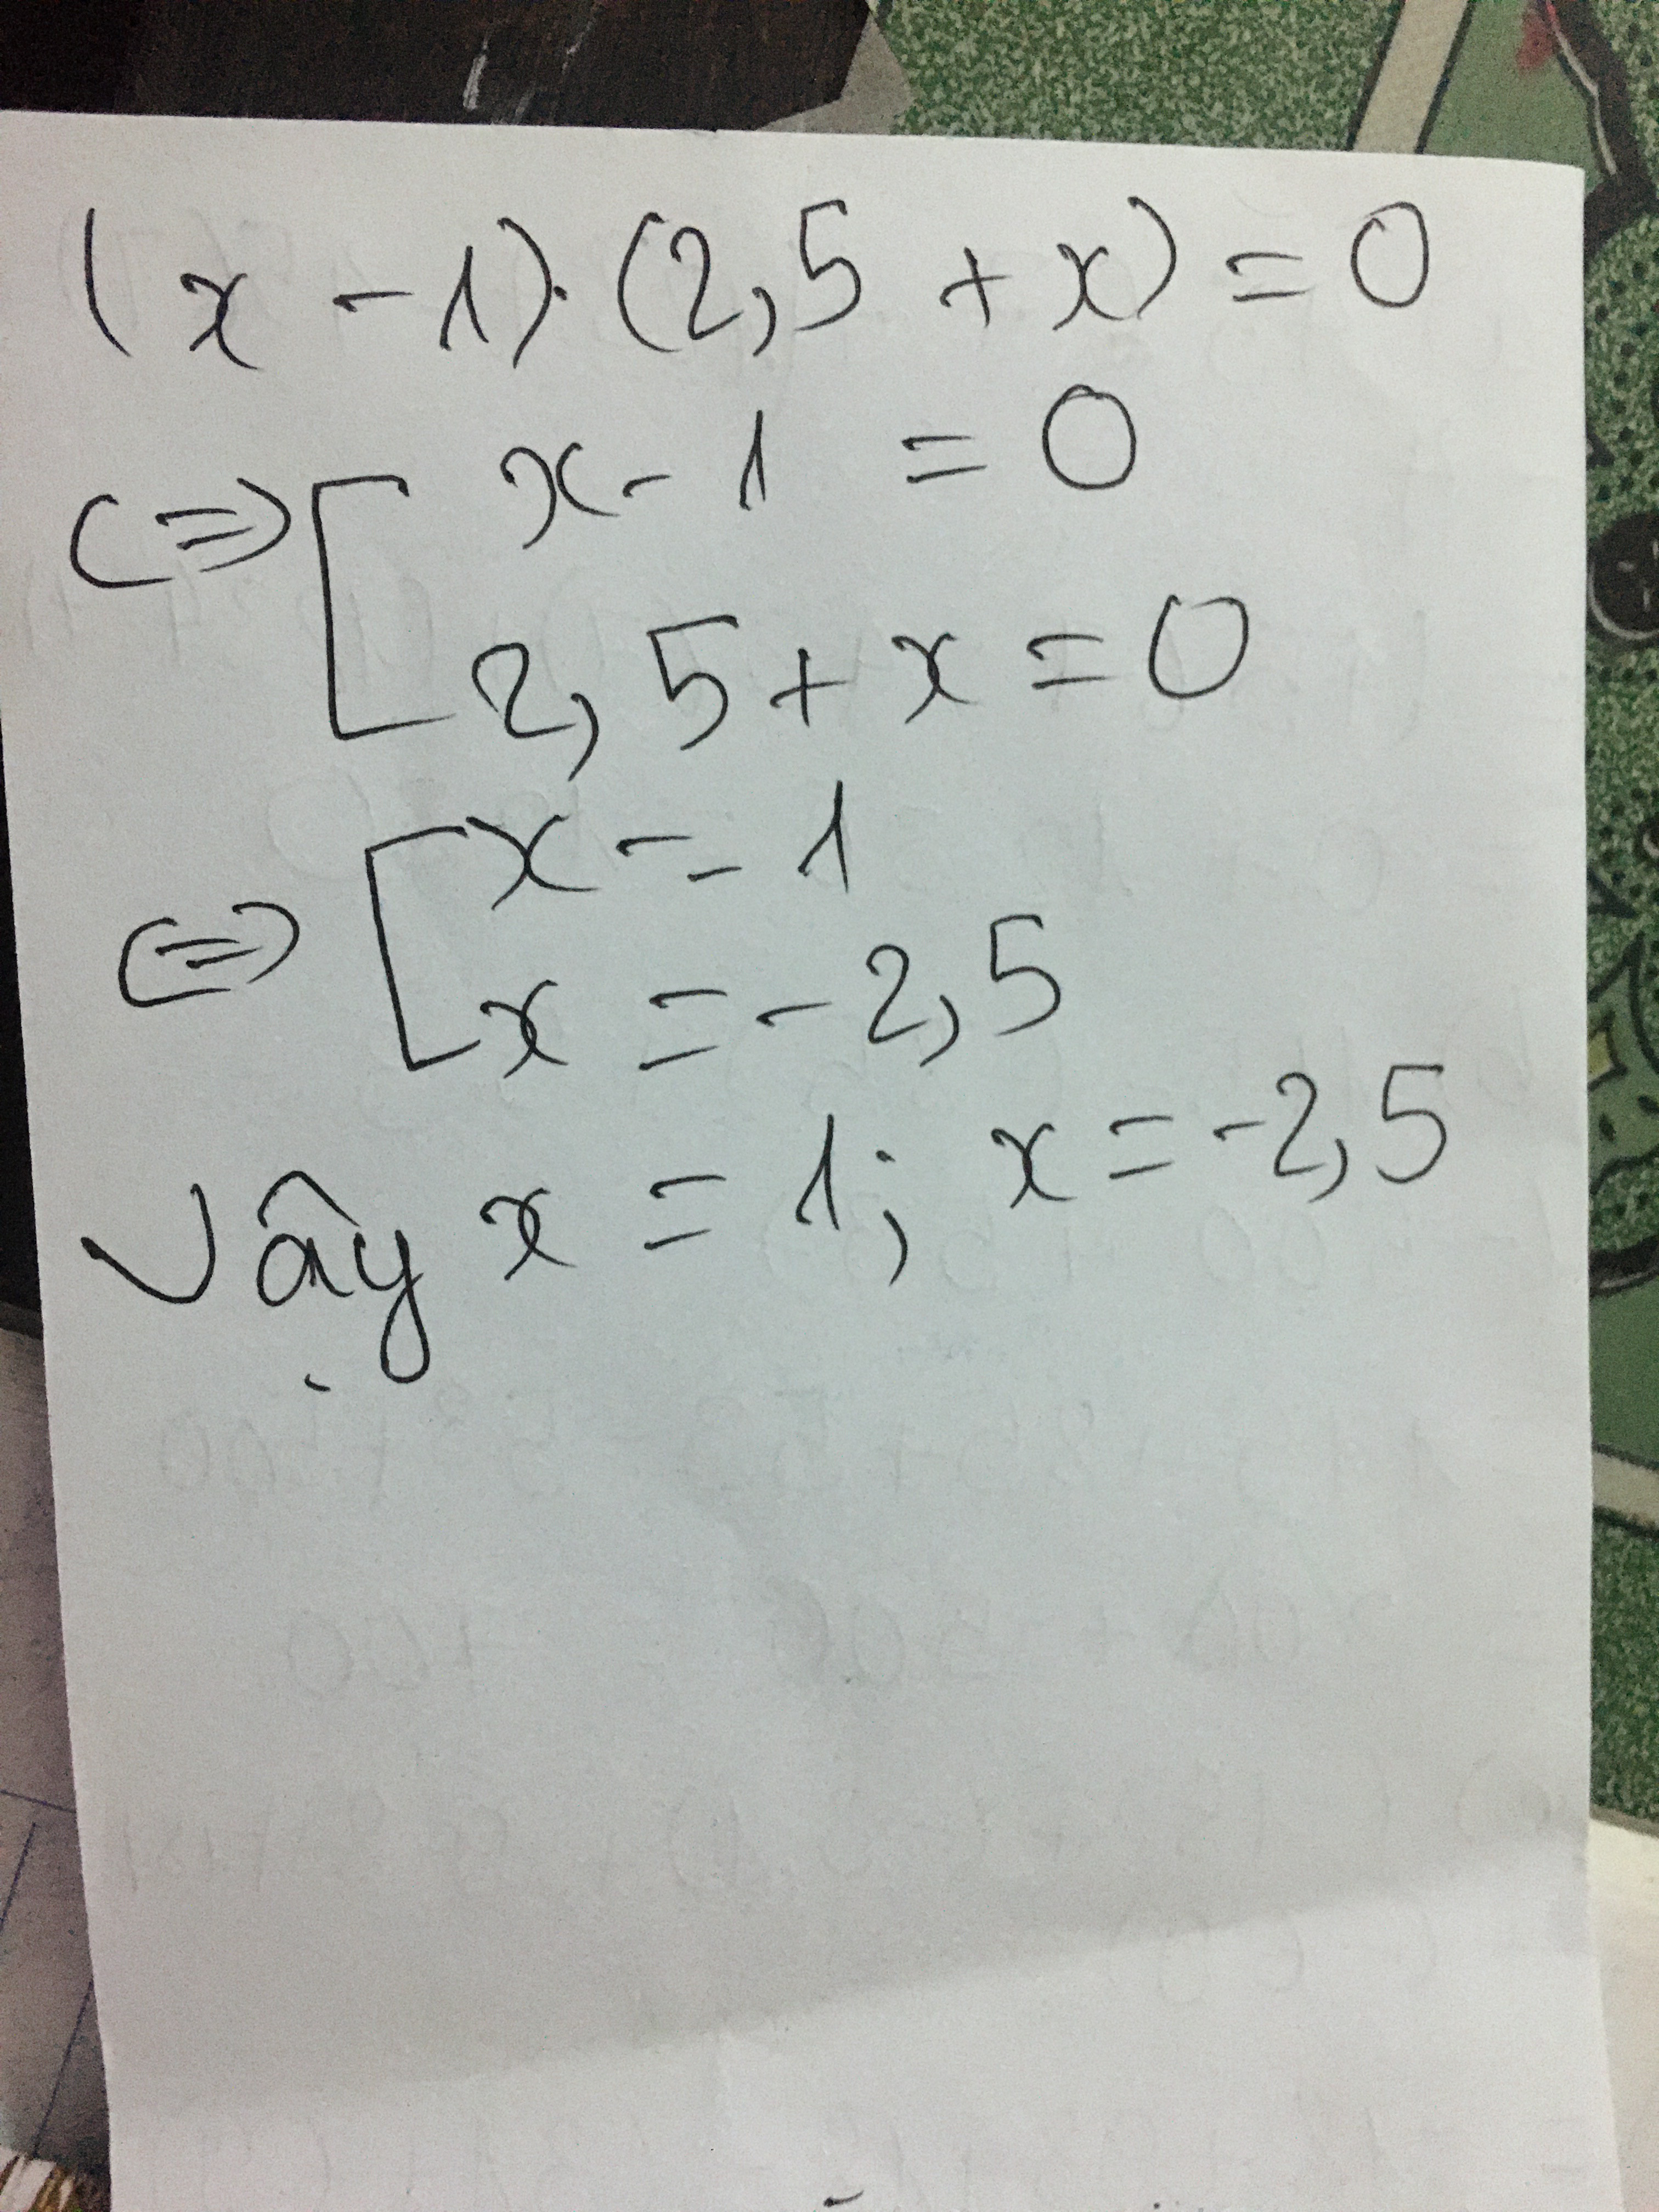 (x - 1).(2,5 + x) = 0
<=> [ x - 1 = 0
2,5 + x = 0
<=> [ x = 1
x = -2,5
Vậy x = 1; x = -2,5